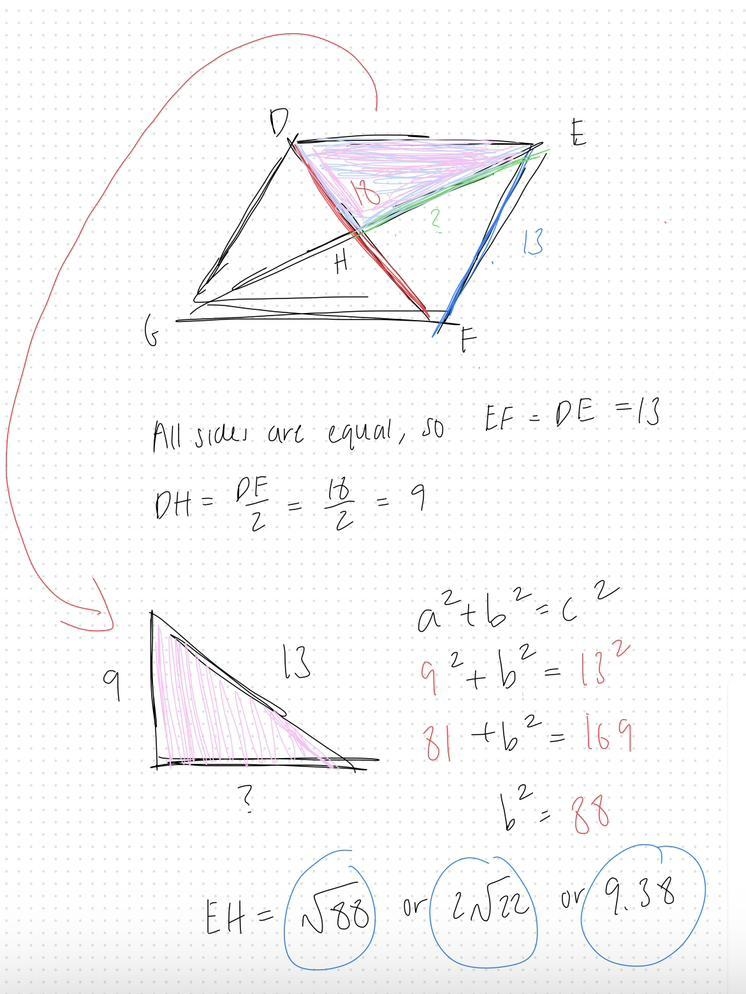 D
E
18
?
13
H
G
F
All sides are equal, so EF = DE = 13
DH = DF/2 = 18/2 = 9
a² + b² = c²
9
13
9² + b² = 13²
81 + b² = 169
?
b² = 88
EH = √88 or 2√22 or 9.38